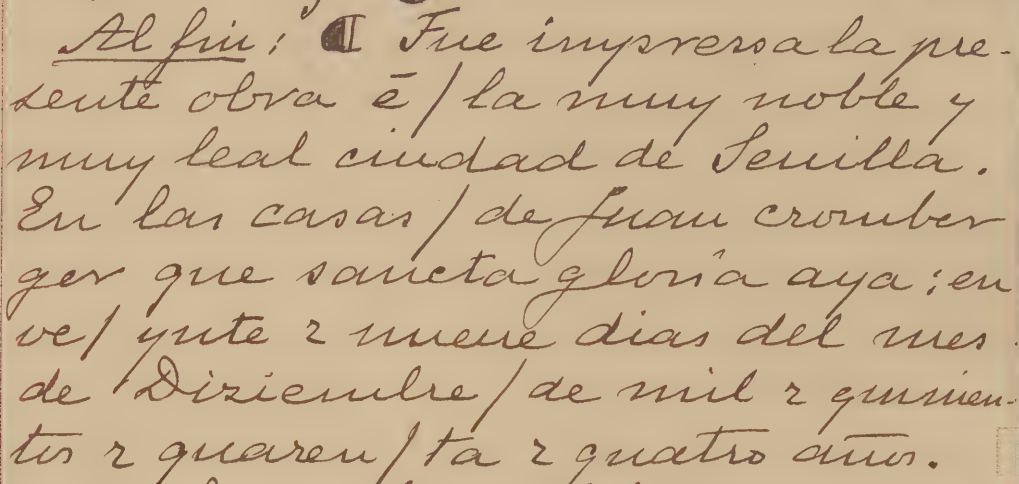 Al fin: ¶ Fue impressa la pre-
sente obra ē / la muy noble y
muy leal ciudad de Seuilla.
En las casas / de Juan cromber
ger que sancta gloria aya: en
ve / ynte ⁊ nueue dias del mes
de Diziembre / de mil ⁊ quinien-
tos ⁊ quaren / ta ⁊ quatro años.